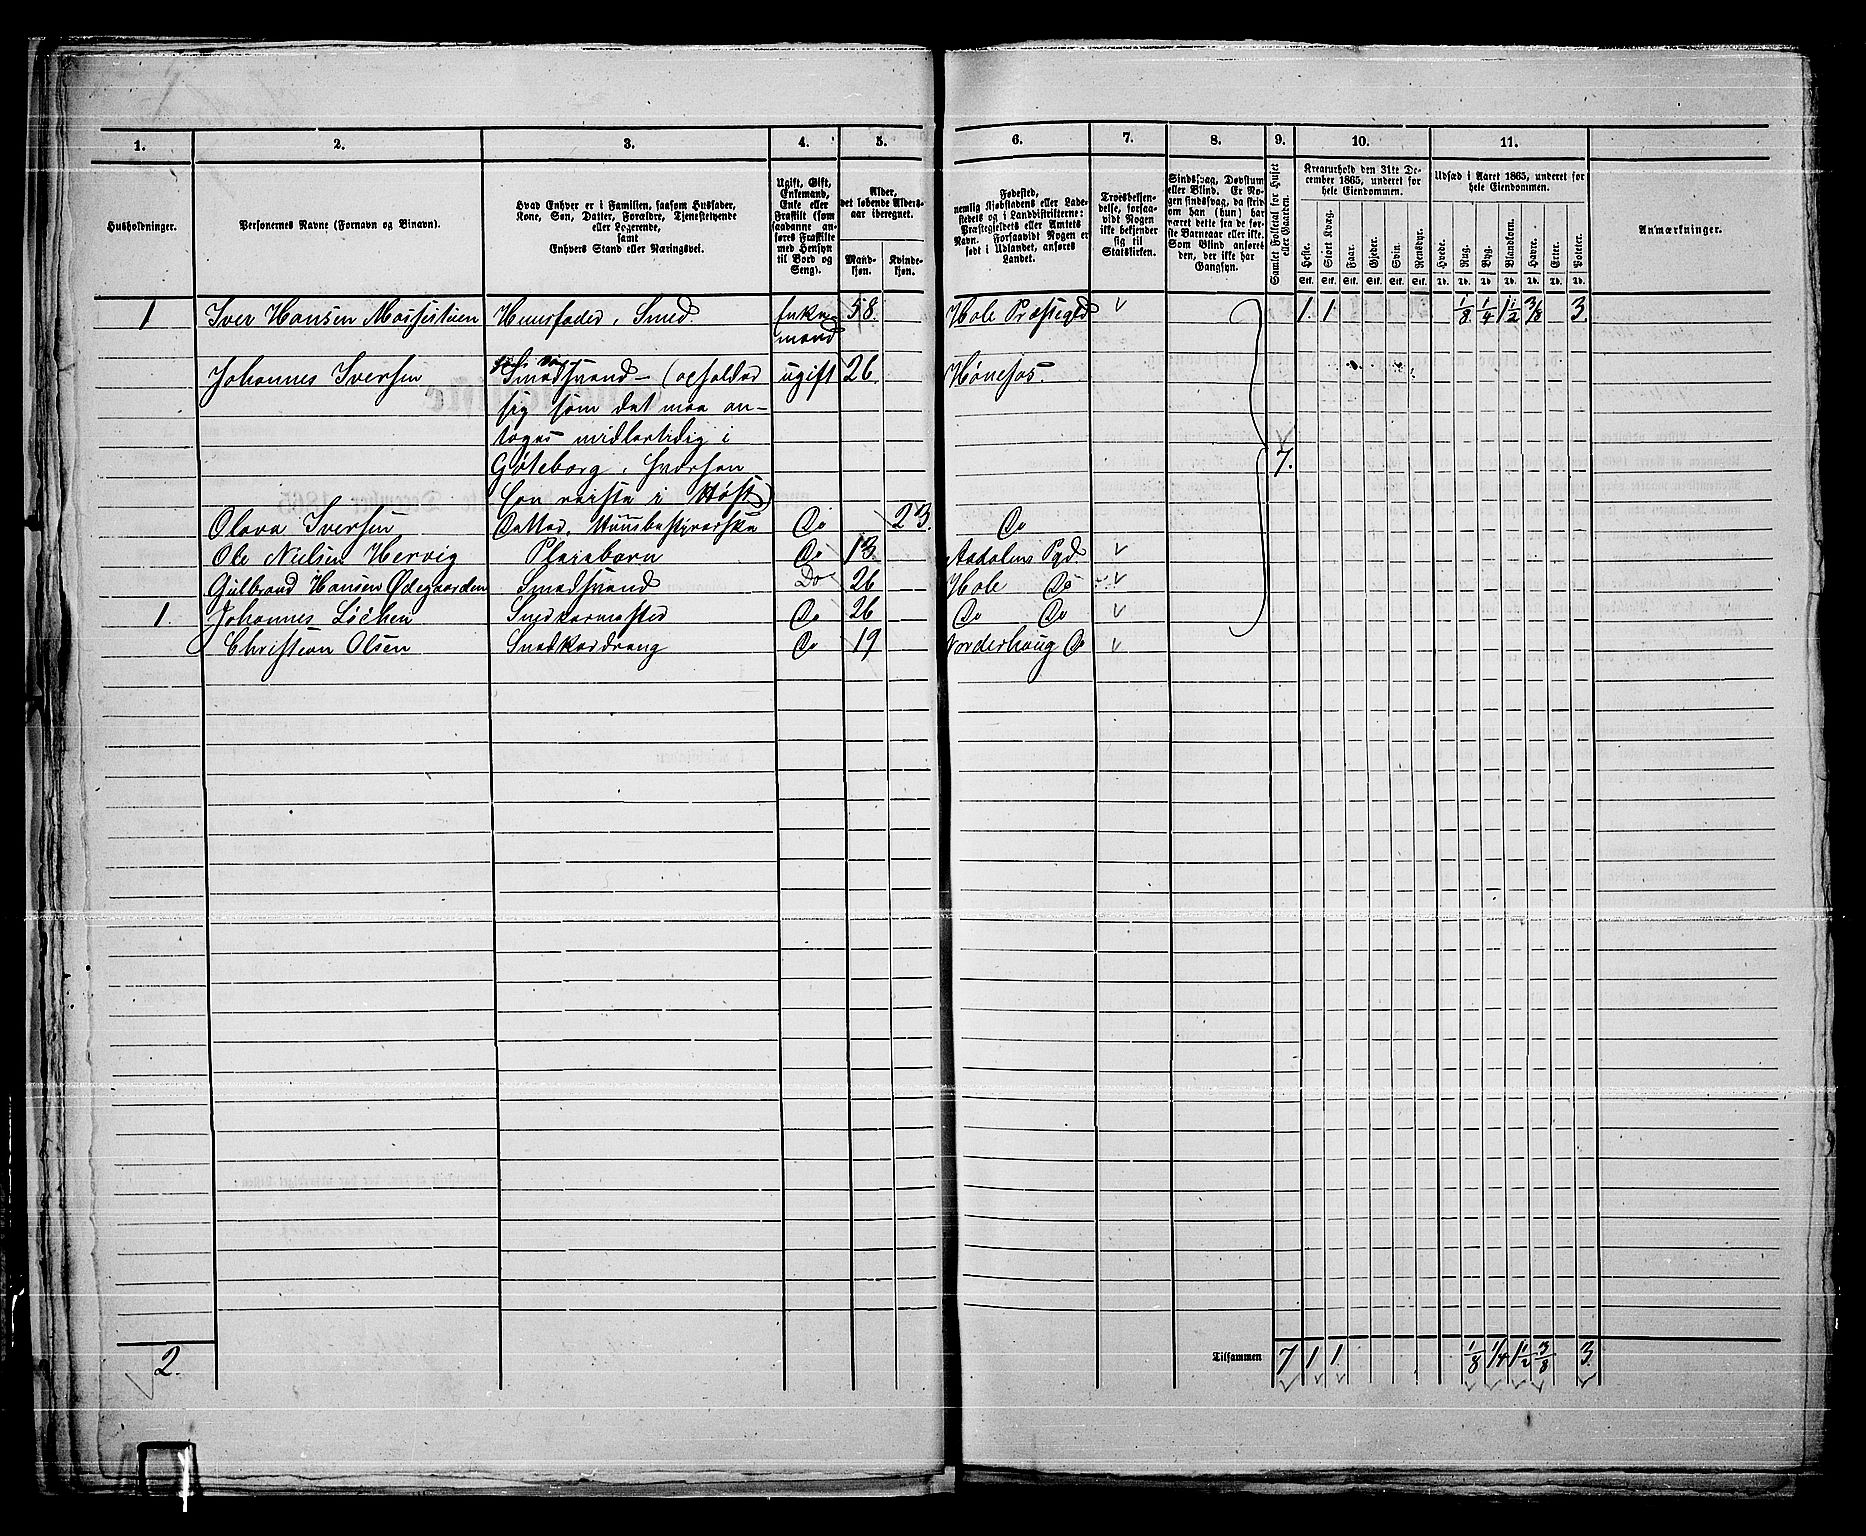 1. 2. 3. 4. 5. 6. 7. 8. 9. 10. 11.
Husholdninger.
Personernes Navne (Fornavn og Binavn).
Hvad Enhver er i Familien, saasom Husfader,
Kone, Søn, Datter, Forældre, Tjenestetyende
eller Logerende,
samt
Enhvers Stand eller Næringsvei.
Ugift, Gift,
Enkemand,
Enke eller
Fraskilt (som
saadanne an-
føres Fraskilte
med Hensyn
til Bord og
Seng).
Alder,
det løbende Alders-
aar iberegnet.
Mand-
kjøn.
Kvinde-
kjøn.
Fødested,
nemlig Kjøbstadens eller Lade-
stedets og i Landdistrikterne:
Præstegjeldets eller Amtets
Navn. Forsaavidt Nogen er
født i Udlandet, anføres
Landet.
Troesbekjen-
delse, forsaa-
vidt Nogen
ikke bekjender
sig til
Statskirken.
Sindssvag, Døvstum
eller Blind. Er No-
gen sindssvag, da skriv
om han (hun) har
været dette fra de før-
ste Barneaar eller ikke.
Som Blind anføres
den, der ikke har
Gangsyn.
Samlet Folketal for Huset
eller Gaarden.
Kreaturhold den 31te De-
cember 1865, underet for
hele Eiendommen.
Heste. Stort Kvæg. Faar. Gjeder. Svin. Rensdyr.
Stk. Stk. Stk. Stk. Stk. Stk.
Udsæd i Aaret 1865, underet for
hele Eiendommen.
Hvede. Rug. Byg. Blandkorn. Havre. Erter. Poteter.
Td. Td. Td. Td. Td. Td. Td.
Anmærkninger.
1 Iver Hansen Husfader, Smed. Enke- 58 Hole Præstegjld 1. 1 1/8 1/4 1 1/2 3/8 3.
mand
Johannes Iversen Smedsvend – (opholder ugift 26 Hønefos.
sig som det maa an-
tages midlertidig i
Gøteborg, hvorhen
han reiste i Høst) 7.
Olava Iversen Datter, Huusbestyrerske Do 23. Do
Ole Nielsen Hervig Pleiebarn Do 13 Aadalens Pgd.
Gulbrand Hansen Ødegaarden Smedsvend Do 26 Hole Do
1. Johannes Løchen Snedkermester Do 26 Do Do
Christian Olsen Snedkerdreng Do 19 Norderhoug Do
2. Tilsammen 7 1 1. 1/8 1/4 1 1/2 3/8 3.